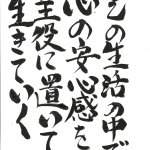 の生活の中で
心の安心感を
主役に置いて
生きていく